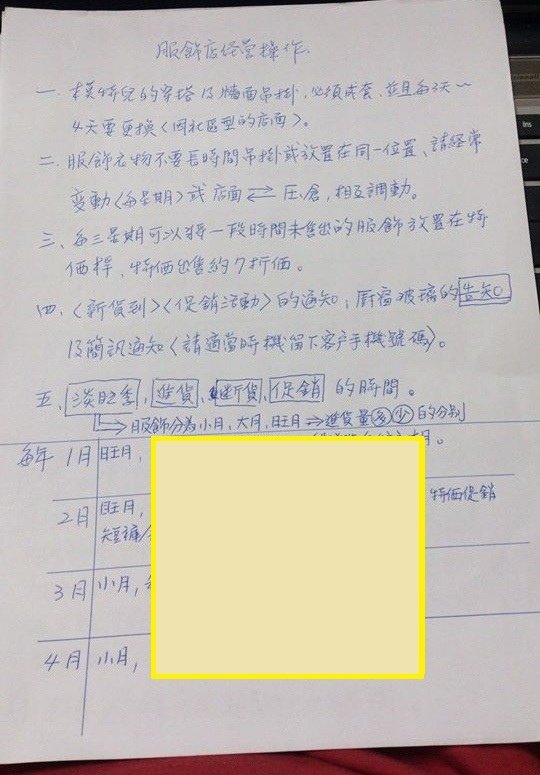 服飾店经营操作.
一. 木莫特兒的穿搭及牆面吊掛, 必須成套, 並且每3天～
4天要更換〈因社區型的店面〉。
二. 服飾衣物不要長時間吊掛或放置在同一位置、請經常
變動〈每星期〉或店面⇄庄倉,相互調動。
三、每三星期可以將一段時間未售出的服飾放置在特
価桿、特価出售約7折価。
四、〈新貨到〉〈促銷活動〉的通知; 厨窗玻璃的告知
及簡訊通知〈請適當時機留下客户手機號碼〉。
五、淡旺季,進貨,断貨,促銷 的時間。
→服飾分為小月,大月,旺月⇒進貨量多少的分别
期。
每年 1月 旺月,
2月 旺月, 特価促銷
短褲/
3月 小月,
4月 小月,